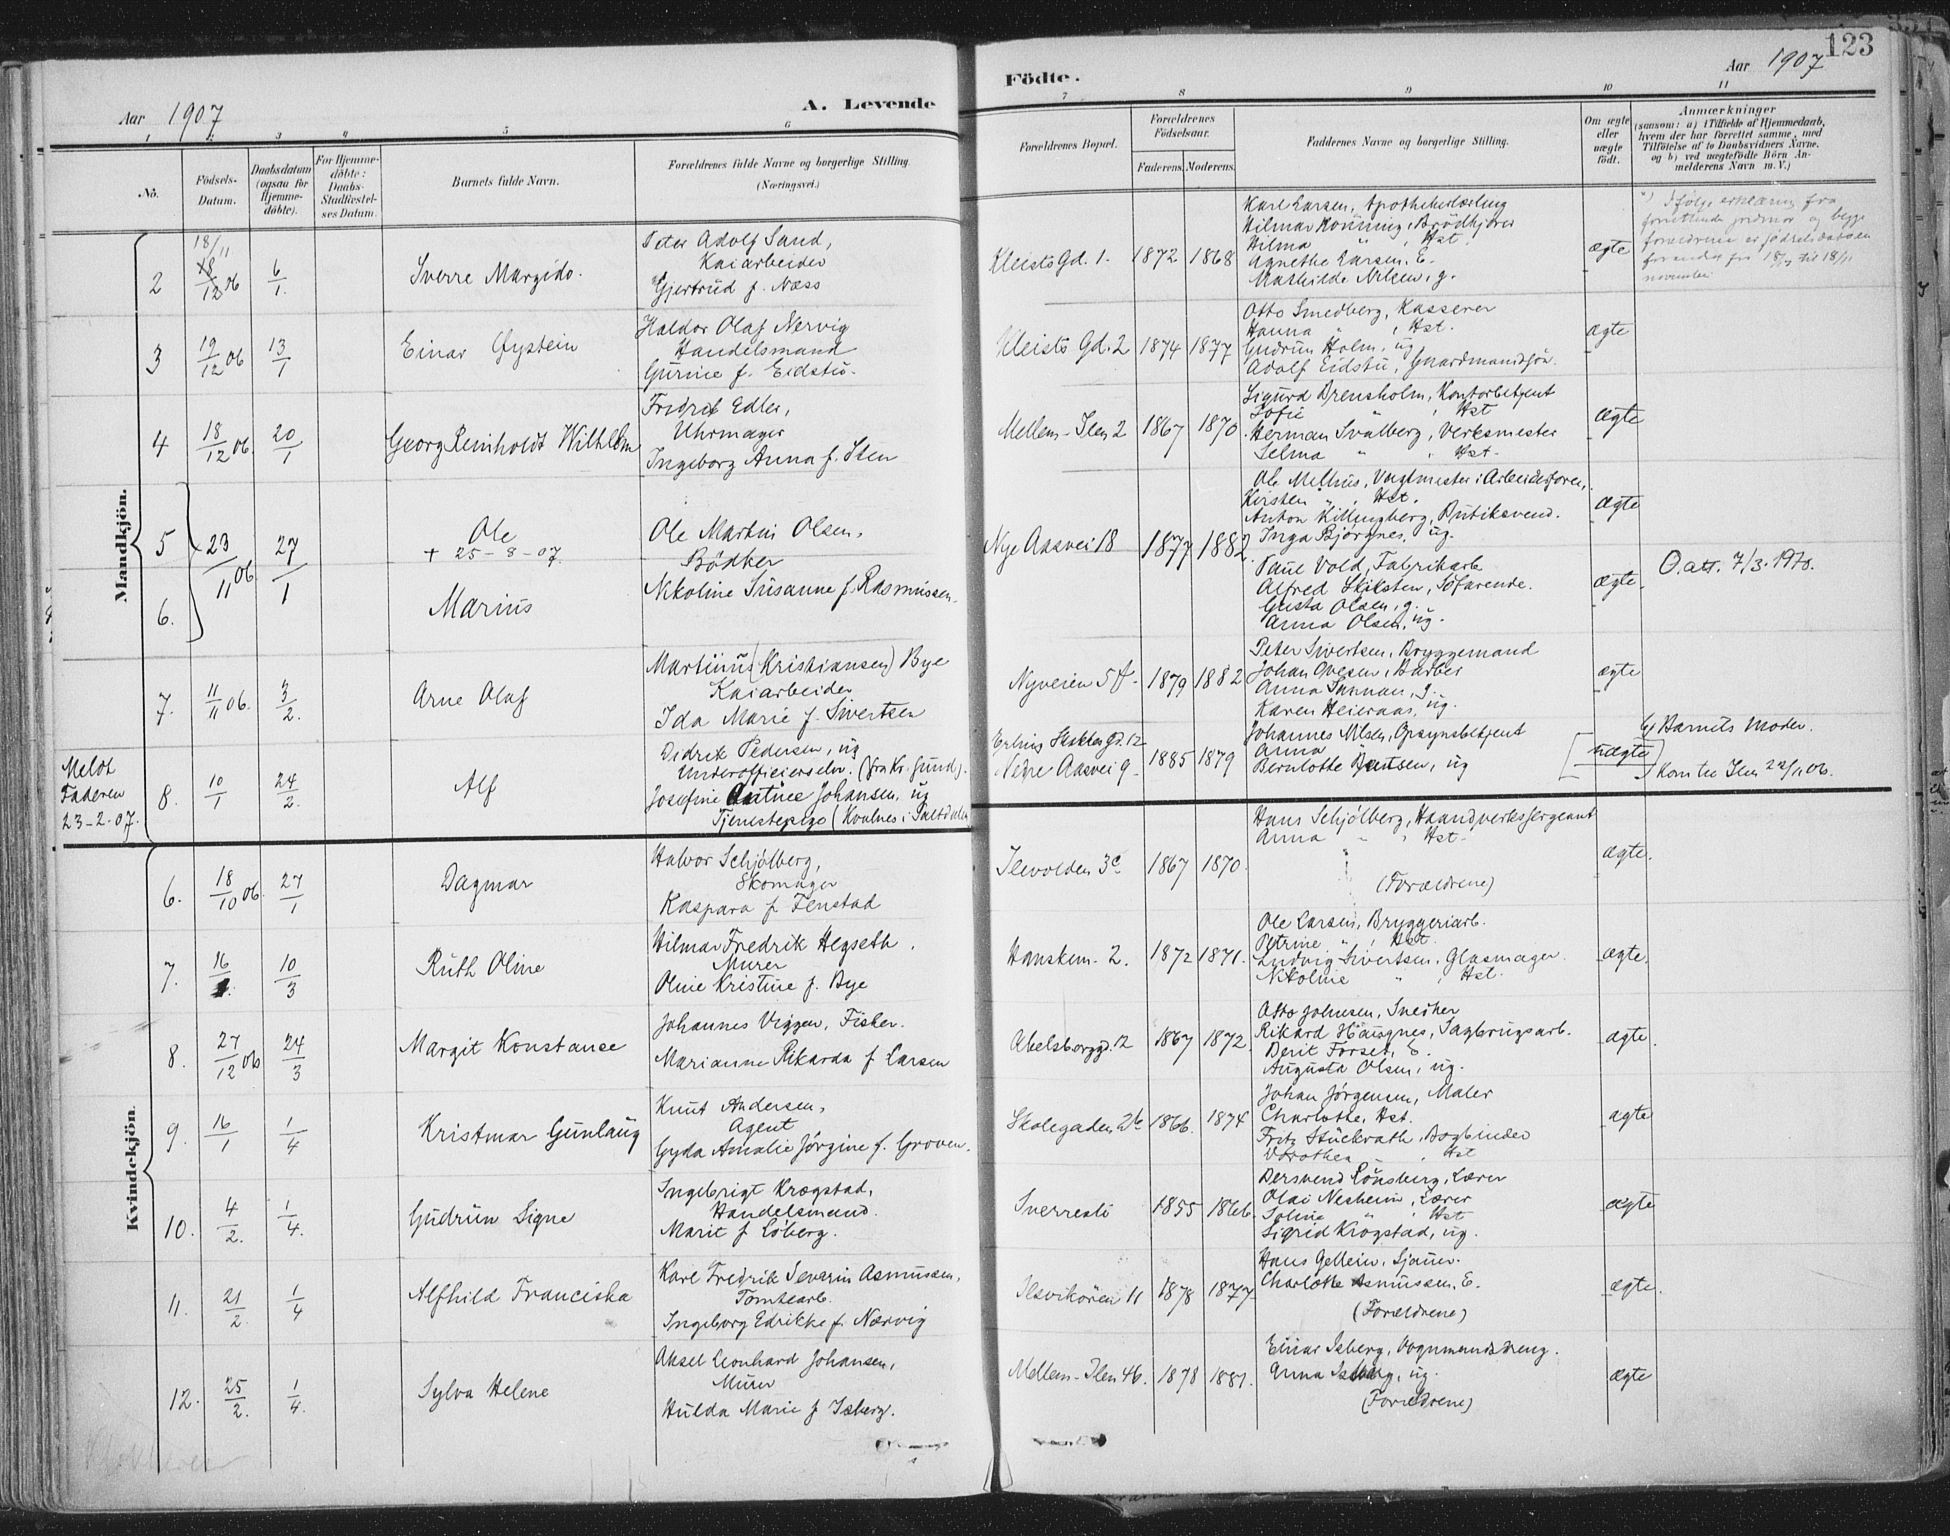 123
Aar 1907
A. Levende
Födte.
Aar 1907
1 3 4 5 6 7 8 9 10 11
No.
Födsels-Datum.
Daabsdatum (ogsaa for Hjemme-döbte).
For Hjemme-döbte: Daabs-Stadfæstel-ses Datum.
Barnets fulde Navn.
Forældrenes fulde Navne og borgerlige Stilling. (Næringsvei.)
Forældrenes Bopæl.
Forældrenes Födselsaar.
Faderens. Moderens.
Faddernes Navne og borgerlige Stilling.
Om ægte eller uægte födt.
Anmærkninger
(saasom: a) i Tilfælde af Hjemmedaab, hvem der har forrettet samme, med Tilföielse af to Daabsvidners Navne, og b) ved uægtefödte Börn An-melderens Navn m. V.)
Mandkjön.
2 18/11 8/12 06 6/1 Sverre Margido.
Peter Adolf Sand,
Kaiarbeider
Gjertrud f. Næss
Kleists Gd. 1. 1872 1868
Karl Larsen, Apothekerlærling
Hilmar Könning, Brödkjörer
Hilma " , Hst.
Agnethe Larsen, E.
Mathilde Nilsen, g.
ægte
Ifølge erklæring fra
forrettende jordmor og begge
forældrene er fødselsdatoen
forandret fra 18/12 til 18/11
november
3 19/12 06 13/1 Einar Øystein
Haldor Olaf Nervig
Handelsmand
Gurine f. Eidstu.
Kleists Gd. 2 1874 1877
Otto Smedberg, Kasserer
Hanna " , Hst.
Gudrun Holm, ug
Adolf Eidstu, Gaardmandssön.
ægte
4 18/12 06. 20/1 Georg Reinholdt Wilhelm
Fredrik Edler,
Uhrmager
Ingeborg Anna f. Sten
Mellem-Ilen 2 1867 1870.
Sigurd Drensholm, Kontorbetjent
Sofie " , Hst
Herman Svalberg, Verksmester
Selma " , Hst.
ægte
5 23/11 06 27/1 Ole
+ 25-8-07.
Ole Martin Olsen,
Bödker
Nikoline Susanne f. Rasmussen.
Nye Aasvei 18 1877 1882
Ole Melhus, Vagtmester i Arbeiderforen.
Kirsten " , Hst.
Anton Killingberg, Butiksvend.
Inga Bjørgnes, ug.
ægte
6. Marius
Paul Vold, Fabrikarb
Alfred Skiksten, Søfarende.
Gusta Olsen, g.
Anna Olsen, ug.
ægte
O. att. 7/3.1970.
7. 11/11 06. 3/2. Arne Olaf
Martinus (Kristiansen) Bye
Kaiarbeider
Ida Marie f. Sivertsen
Nyveien 5 f. 1879 1882
Peter Sivertsen, Bryggemand
Johan Ovesen, Barber
Anna Sannan, g.
Karen Heieraas, ug.
ægte
Meldt
Faderen
23-2-07.
8. 10/1 24/2. Alf
Didrik Pedersen, ug
Underofficierselev. (fra Kr.sund).
Josefine Johansen, ug
Tjenestepige (Kvalnes i Saltdalen)
Gd. 12
Nedre Aasvei 9 1885 1879
Johannes Nilsen, Opsynsbetjent
Anna
Bernlotte Jansen, ug
uægte
Barnets Moder.
Kom tee Ilen 22/11 06.
Kvindekjön.
6. 18/10 06 27/1 Dagmar
Halvor Schjölberg,
Skomager
Kaspara f. Fenstad
Ilevolden 3c 1867 1870.
Hans Schjølberg, Haandverkssergeant
Anna " , Hst.
(Forældrene)
ægte.
7. 16/1. 10/3 Ruth Oline
Hilmar Fredrik Hegseth.
Murer
Oline Kristine f. Bye
Hanskem. 2. 1872 1871.
Ole Larsen, Bryggeriarb.
Petrine " , Hst.
Ludvig Sivertsen, Glasmager.
Nikoline " , Hst.
ægte.
8. 27/12 06 24/3 Margit Konstanse
Johannes Viggen, Fisker.
Marianne Rikarda f Larsen
Abelsborgg. 12 1867 1872.
Otto Johnsen, Snedker
Rikard Haugnes, Sagbrugsarb.
Berit Forset, E.
Augusta Olsen, ug.
ægte.
9. 16/1 1/4 Kristmar Gunlaug
Knut Andersen,
Agent
Gyda Amalie Jørgine f. Groven.
Skolegaden 2b 1866. 1874
Johan Jørgensen, Maler
Charlotte, Hst.
Fritz Stückrath, Bogbinder
Dorothea " , Hst
ægte
10. 4/2. 1/4. Gudrun Signe
Ingebrigt Krogstad,
Handelsmand.
Marit f Löberg.
Sverresli 1855 1866.
Bersvend Lönsberg, Lærer
Olai Nesheim, Lærer
Soline " , Hst
Sigrid Krogstad, ug.
ægte
11. 21/2. 1/4 Alfhild Franciska
Karl Fredrik Severin Asmussen,
Tomtearb.
Ingeborg Edrikke f. Nærvig
Ilsvikören 11 1878 1877
Hans Gellein, Sjauer.
Charlotte Asmussen, E.
(Forældrene)
ægte.
12. 25/2. 1/4. Sylva Helene
Aksel Leonhard Johansen,
Murer
Hulda Marie f Isberg.
Mellem-Ilen 46. 1878 1881.
Einar Isberg, Vognmandsdreng.
Anna Isberg, ug.
(Forældrene)
ægte